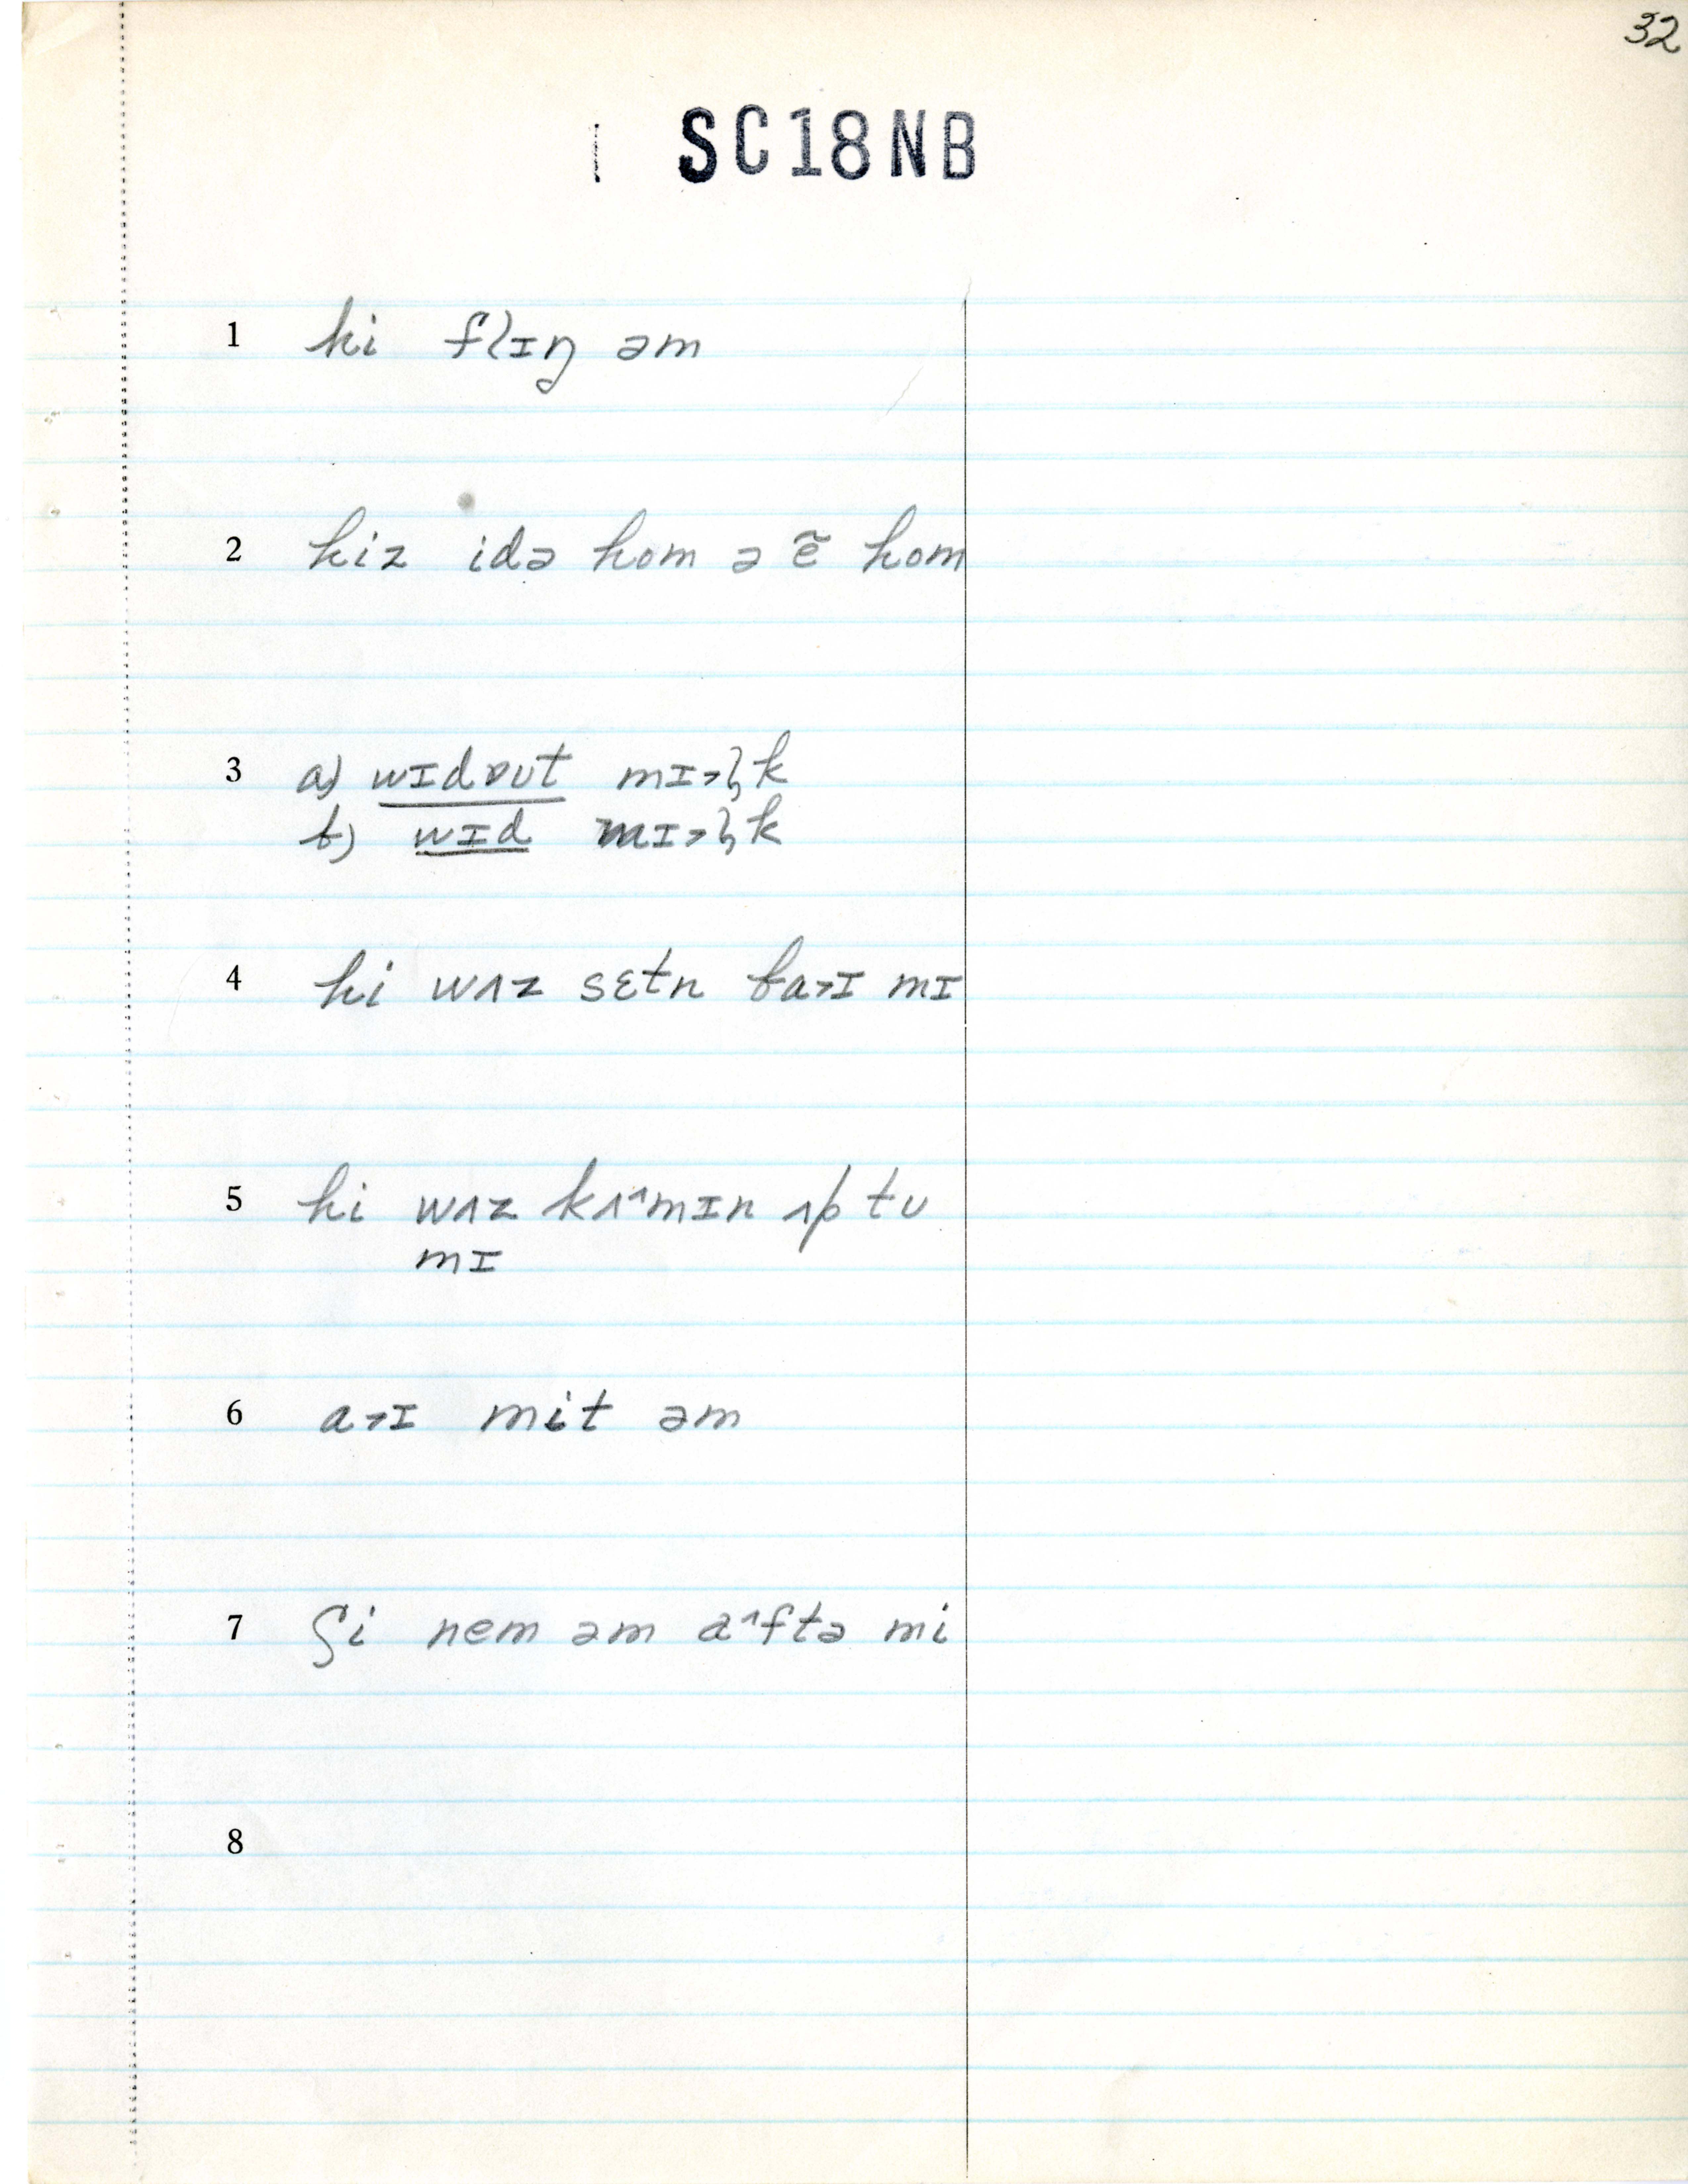 32
SC18NB
1 hi flɪŋ əm
2 hiz idə hom ə ẽ hom
3 a) wɪdɒut mɪ˃ɫk
b) wɪd mɪ˃ɫk
4 hi wʌz sɛtn ba˃ɪ mɪ
5 hi wʌz kʌ^mɪn ʌp tʊ
mɪ
6 a˃ɪ mit əm
7 ʃi nem əm a^ftə mi
8